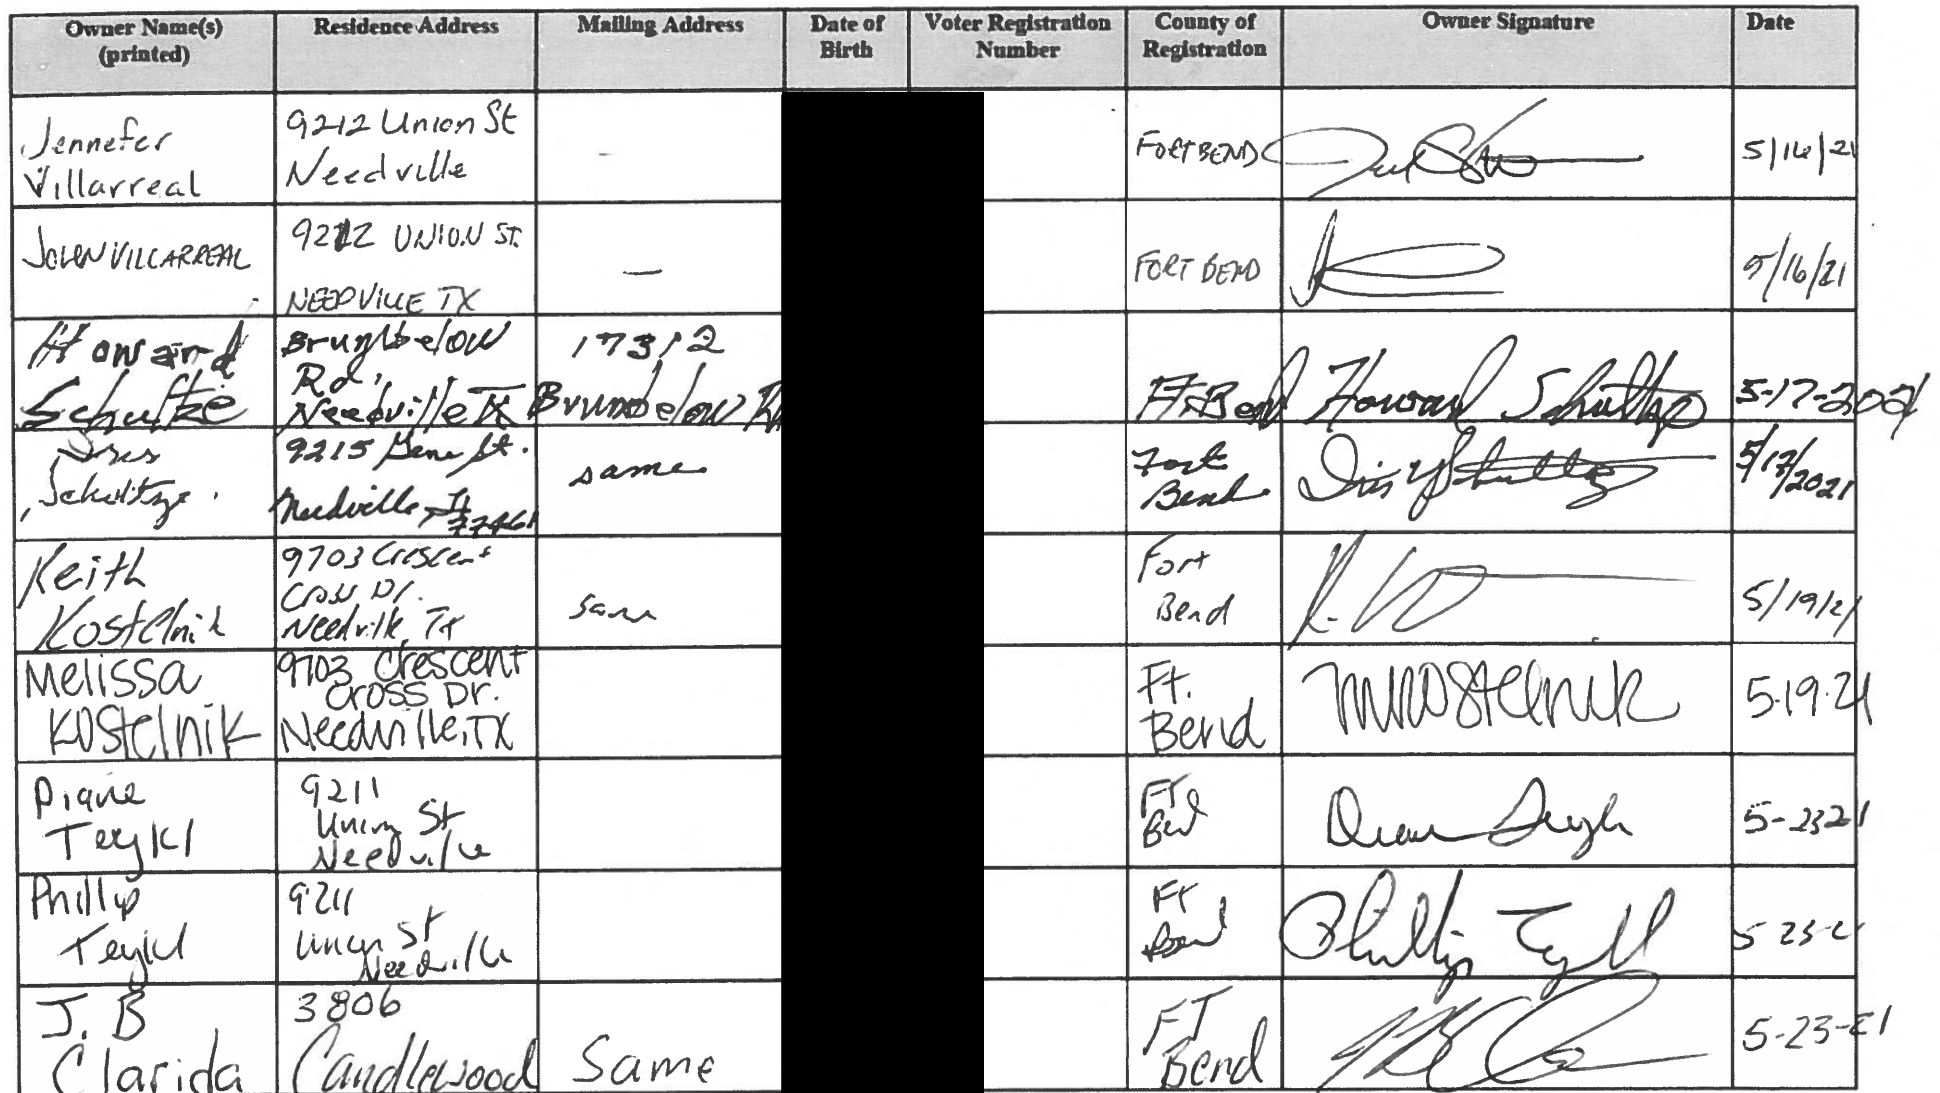 Owner Name(s) (printed) Residence Address Mailing Address Date of Birth Voter Registration Number County of Registration Owner Signature Date
Jennefer
Villarreal
9212 Union St
Needville
-
FORT BEND
5/16/21
JOHN VILLARREAL
9212 UNION ST.
NEEDVILLE TX
—
FORT BEND
5/16/21
Howard
Schultze
Brumbelow
Rd,
Needville TX
17312
Brumbelow Rd
Ft. Bend
Howard Schultze
5-17-2021
Iris
Schultze
9215 Gene St.
Needville, Tx
77461
same
Fort
Bend
Iris Y Schultze
5/17/2021
Keith
Kostelnik
9703 Crescent
Cross Dr.
Needville, TX
same
Fort
Bend
5/19/21
Melissa
Kostelnik
9703 Crescent
Cross Dr.
Needville, TX
Ft.
Bend
MKostelnik
5.19.21
Diane
Teykl
9211
Union St
Needville
FT
Bend
Diane Teykl
5-23-21
Phillip
Teykl
9211
Union St
Needville
Ft
Bend
Phillip Teykl
5 23-21
J. B
Clarida
3806
Candlewood
Same
FT
Bend
5-23-21